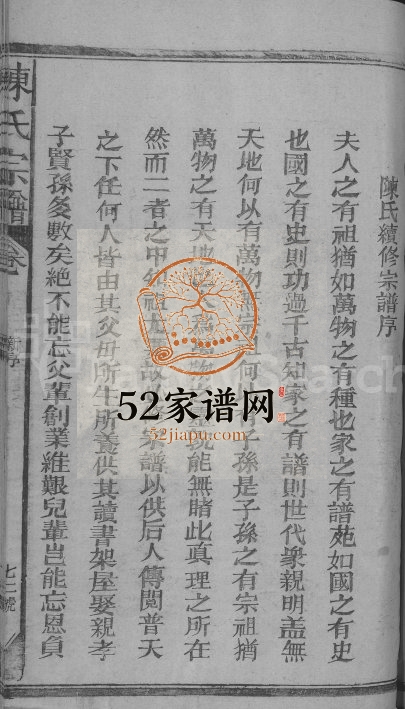 陳氏續修宗譜序
夫人之有祖猶如萬物之有種也家之有譜苑如國之有史
也國之有史則功過千古知家之有譜則世代衆親明盖無
天地何以有萬物 宗 何 子孫是子孫之有宗祖猶
萬物之有天地 能無賭此真理之所在
然而二者之中 祖 故 譜以供后人傳閱普天
之下任何人皆由其父母所生所養供其讀書架屋娶親孝
子賢孫多數矣絶不能忘父輩創業維艱兒輩豈能忘恩負
陳氏宗譜
卷
新序
七二號
52家谱网
52jiapu.com